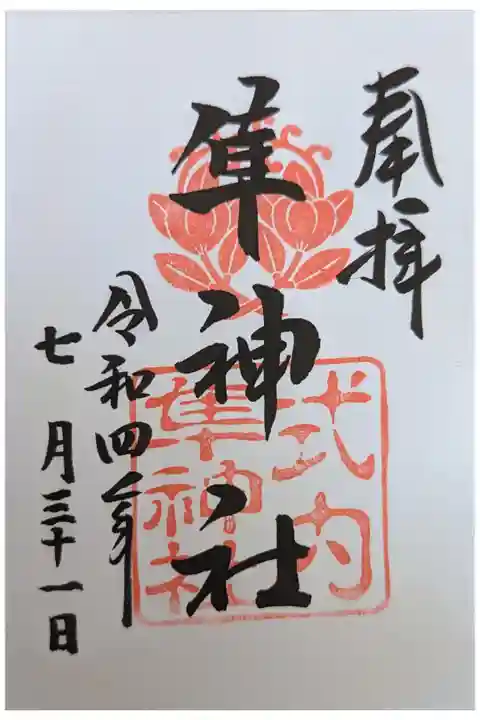 奉拝
隼神社
式内
隼神社
令和四年
七月三十一日